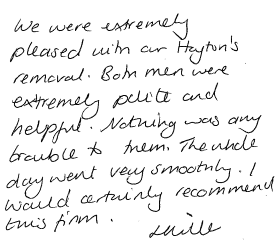 We were extremely
pleased with our Hayton's
removal. Both men were
extremely polite and
helpful. Nothing was any
trouble to them. The whole
day went very smoothly. I
would certainly recommend
this firm.